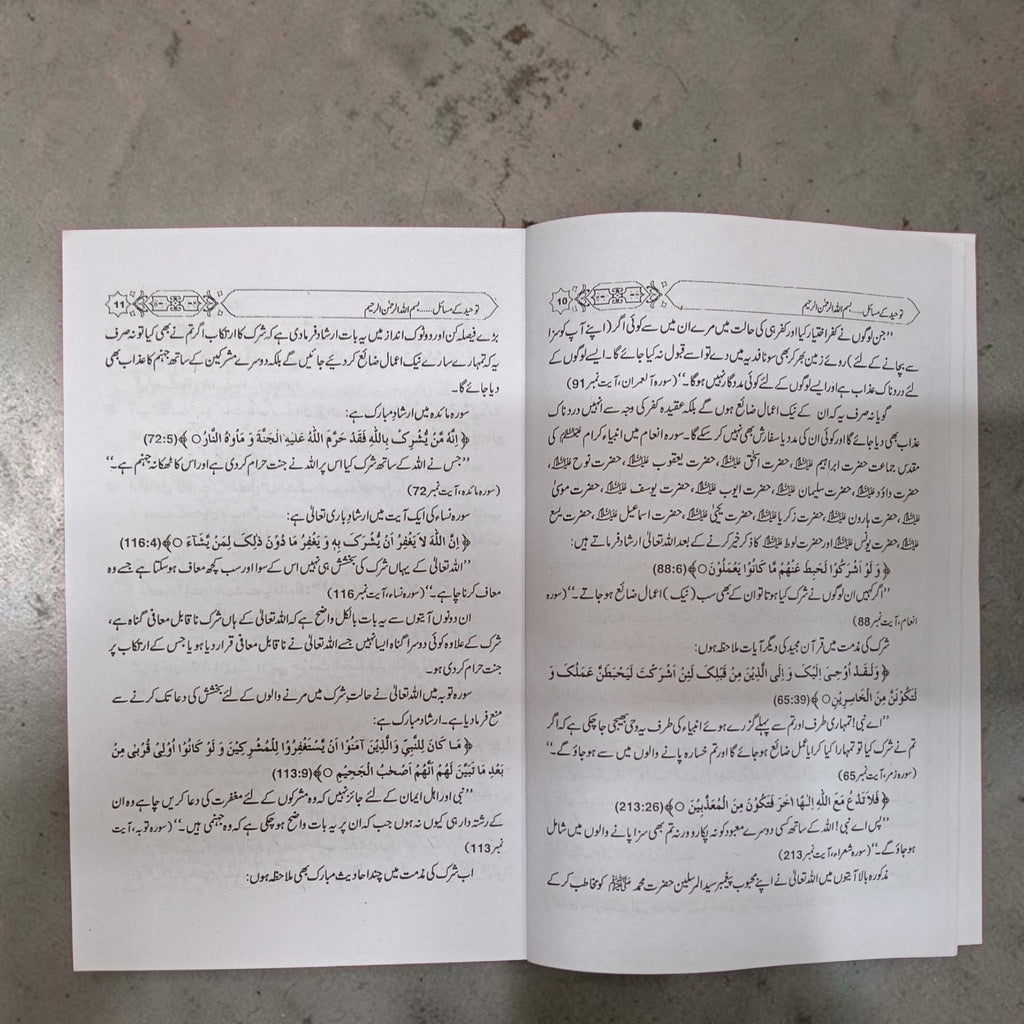 توحید کے مسائل.....بسم اللہ الرحمٰن الرحیم
10
’’جن لوگوں نے کفر اختیار کیا اور کفر ہی کی حالت میں مرے ان میں سے کوئی اگر (اپنے آپ کو سزا
سے بچانے کے لئے) روئے زمین بھر کر بھی سونا فدیہ میں دے تو اسے قبول نہ کیا جائے گا۔ ایسے لوگوں کے
لئے دردناک عذاب ہے اور ایسے لوگوں کے لئے کوئی مددگار نہیں ہوگا۔‘‘ (سورہ آل عمران، آیت نمبر 91)
گویا نہ صرف یہ کہ ان کے نیک اعمال ضائع ہوں گے بلکہ عقیدہ کفر کی وجہ سے انہیں دردناک
عذاب بھی دیا جائے گا اور کوئی ان کی مدد یا سفارش بھی نہیں کر سکے گا۔ سورہ انعام میں انبیاء کرام علیہم السلام کی
مقدس جماعت حضرت ابراہیم علیہ السلام، حضرت اسحٰق علیہ السلام، حضرت یعقوب علیہ السلام، حضرت نوح علیہ السلام،
حضرت داؤد علیہ السلام، حضرت سلیمان علیہ السلام، حضرت ایوب علیہ السلام، حضرت یوسف علیہ السلام، حضرت موسیٰ
علیہ السلام، حضرت ہارون علیہ السلام، حضرت زکریا علیہ السلام، حضرت یحییٰ علیہ السلام، حضرت اسماعیل علیہ السلام، حضرت یسع
علیہ السلام، حضرت یونس علیہ السلام اور حضرت لوط علیہ السلام کا ذکر خیر کرنے کے بعد اللہ تعالیٰ ارشاد فرماتے ہیں:
﴿ وَ لَوْ اَشْرَكُوْا لَحَبِطَ عَنْهُمْ مَّا كَانُوْا يَعْمَلُوْنَ ○﴾ (88:6)
’’اگر کہیں ان لوگوں نے شرک کیا ہوتا تو ان کے بھی سب (نیک) اعمال ضائع ہو جاتے۔‘‘ (سورہ
انعام، آیت نمبر 88)
شرک کی مذمت میں قرآن مجید کی دیگر آیات ملاحظہ ہوں:
﴿ وَلَقَدْ اُوْحِىَ اِلَيْكَ وَ اِلَى الَّذِيْنَ مِنْ قَبْلِكَ لَئِنْ اَشْرَكْتَ لَيَحْبَطَنَّ عَمَلُكَ وَ
لَتَكُوْنَنَّ مِنَ الْخَاسِرِيْنَ ○ ﴾ (65:39)
’’اے نبی! تمہاری طرف اور تم سے پہلے گزرے ہوئے انبیاء کی طرف یہ وحی بھیجی جا چکی ہے کہ اگر
تم نے شرک کیا تو تمہارا کیا کرایا عمل ضائع ہو جائے گا اور تم خسارہ پانے والوں میں سے ہو جاؤ گے۔‘‘
(سورہ زمر، آیت نمبر 65)
﴿ فَلَا تَدْعُ مَعَ اللّٰهِ اِلٰهًا اٰخَرَ فَتَكُوْنَ مِنَ الْمُعَذَّبِيْنَ ○﴾ (213:26)
’’پس اے نبی! اللہ کے ساتھ کسی دوسرے معبود کو نہ پکارو ورنہ تم بھی سزا پانے والوں میں شامل
ہو جاؤ گے۔‘‘ (سورہ شعراء، آیت نمبر 213)
مذکورہ بالا آیتوں میں اللہ تعالیٰ نے اپنے محبوب پیغمبر سید المرسلین حضرت محمد ﷺ کو مخاطب کر کے
توحید کے مسائل.....بسم اللہ الرحمٰن الرحیم
11
بڑے فیصلہ کن اور دوٹوک انداز میں یہ بات ارشاد فرما دی ہے کہ شرک کا ارتکاب اگر تم نے بھی کیا تو نہ صرف
یہ کہ تمہارے سارے نیک اعمال ضائع کر دیے جائیں گے بلکہ دوسرے مشرکین کے ساتھ جہنم کا عذاب بھی
دیا جائے گا۔
سورہ مائدہ میں ارشاد مبارک ہے:
﴿ اِنَّهٗ مَنْ يُّشْرِكْ بِاللّٰهِ فَقَدْ حَرَّمَ اللّٰهُ عَلَيْهِ الْجَنَّةَ وَ مَاْوٰهُ النَّارُ ○ ﴾ (72:5)
’’جس نے اللہ کے ساتھ شرک کیا اس پر اللہ نے جنت حرام کر دی ہے اور اس کا ٹھکانہ جہنم ہے۔‘‘
(سورہ مائدہ، آیت نمبر 72)
سورہ نساء کی ایک آیت میں ارشاد باری تعالیٰ ہے:
﴿ اِنَّ اللّٰهَ لَا يَغْفِرُ اَنْ يُّشْرَكَ بِهٖ وَ يَغْفِرُ مَا دُوْنَ ذٰلِكَ لِمَنْ يَّشَآءُ ○﴾ (116:4)
’’اللہ تعالیٰ کے یہاں شرک کی بخشش ہی نہیں اس کے سوا اور سب کچھ معاف ہو سکتا ہے جسے وہ
معاف کرنا چاہے۔‘‘ (سورہ نساء، آیت نمبر 116)
ان دونوں آیتوں سے یہ بات بالکل واضح ہے کہ اللہ تعالیٰ کے ہاں شرک نا قابل معافی گناہ ہے،
شرک کے علاوہ کوئی دوسرا گناہ ایسا نہیں جسے اللہ تعالیٰ نے نا قابل معافی قرار دیا ہو یا جس کے ارتکاب پر
جنت حرام کر دی ہو۔
سورہ توبہ میں اللہ تعالیٰ نے حالت شرک میں مرنے والوں کے لئے بخشش کی دعا تک کرنے سے
منع فرما دیا ہے۔ ارشاد مبارک ہے:
﴿ مَا كَانَ لِلنَّبِيِّ وَالَّذِيْنَ آمَنُوْا اَنْ يَّسْتَغْفِرُوْا لِلْمُشْرِكِيْنَ وَ لَوْ كَانُوْا اُوْلِىْ قُرْبٰى مِنْ
بَعْدِ مَا تَبَيَّنَ لَهُمْ اَنَّهُمْ اَصْحٰبُ الْجَحِيْمِ ○﴾ (113:9)
’’نبی اور اہل ایمان کے لئے جائز نہیں کہ وہ مشرکوں کے لئے مغفرت کی دعا کریں چاہے وہ ان
کے رشتہ دار ہی کیوں نہ ہوں جب کہ ان پر یہ بات واضح ہو چکی ہے کہ وہ جہنمی ہیں۔‘‘ (سورہ توبہ، آیت
نمبر 113)
اب شرک کی مذمت میں چند احادیث مبارک بھی ملاحظہ ہوں: